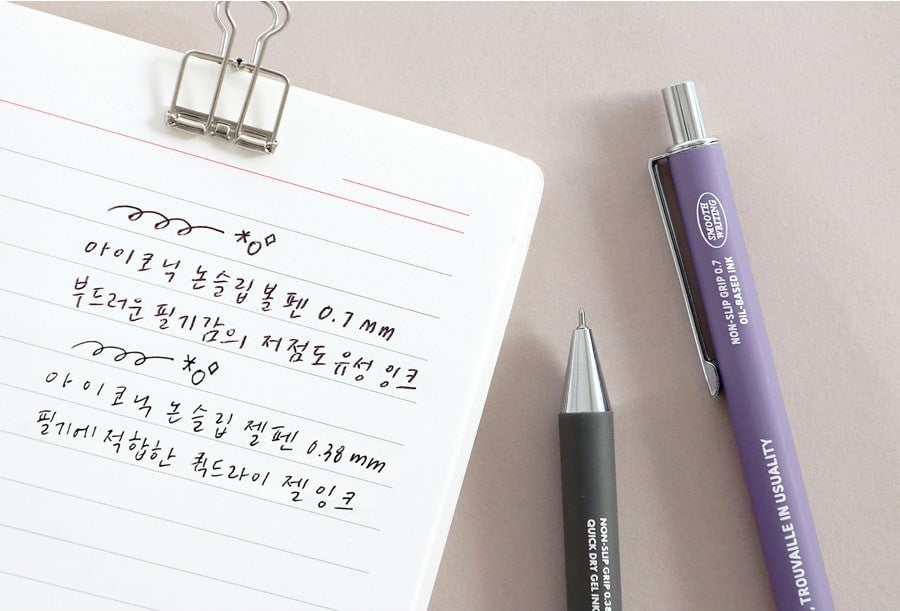 아이코닉 논슬립볼펜 0.7mm
부드러운 필기감의 저점도 유성 잉크
아이코닉 논슬립 젤펜 0.38mm
필기에 적합한 퀵드라이 젤잉크
SMOOTH
WRITING
NON-SLIP GRIP 0.7
OIL-BASED INK
, TROUVAILLE IN USUALITY
NON-SLIP GRIP 0.38
QUICK DRY GEL INK